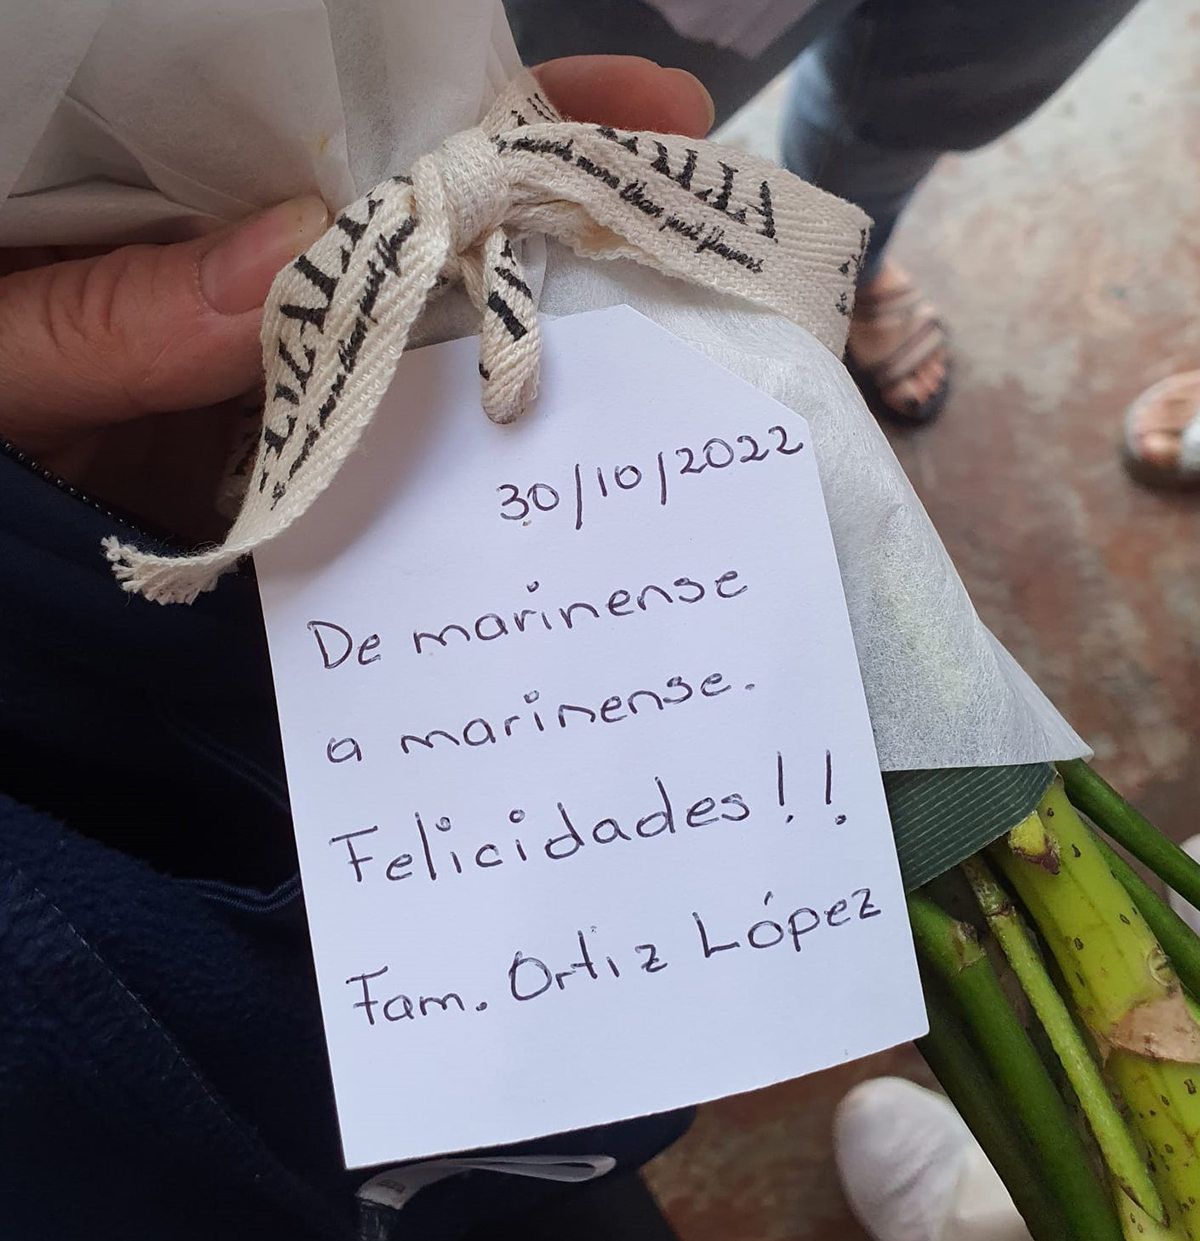 more than just flowers
30/10/2022
De marinense
a marinense.
Felicidades!!
Fam. Ortiz López